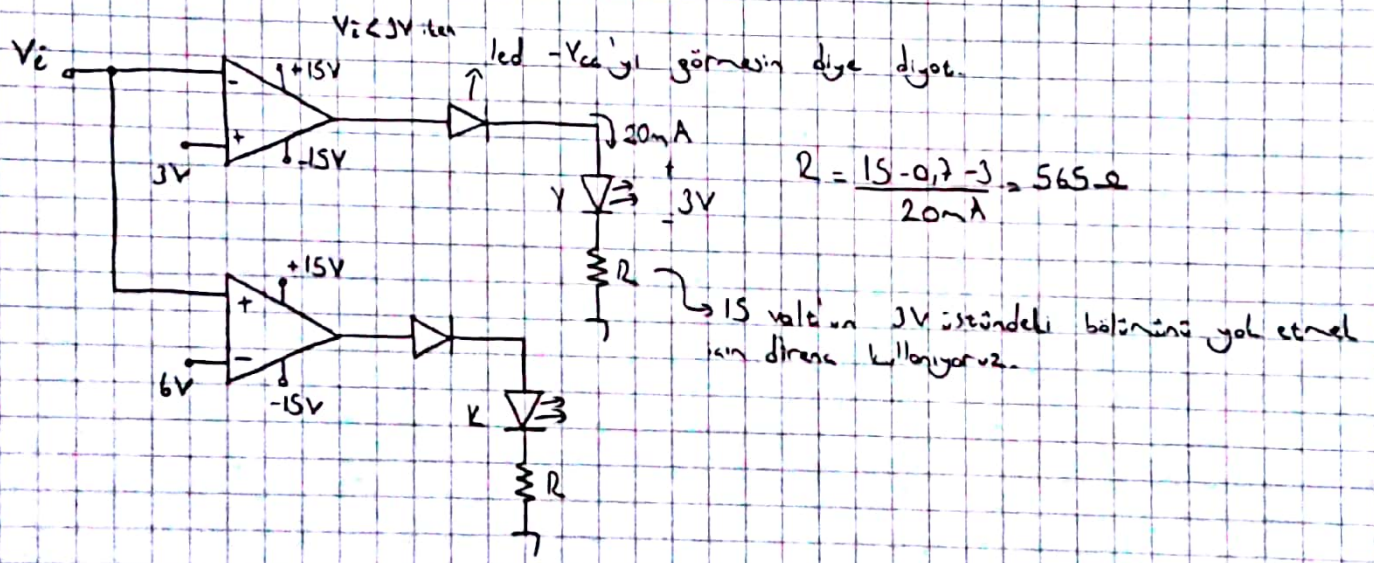 Vi<3V iken
led -Vcc'yi görmesin diye diyot.
Vi
+15V
-
+
-15V
3V
20mA
+
Y
3V
-
R = 15-0,7-3 / 20mA = 565Ω
R
15 volt'un 3V üstündeki bölümünü yok etmek
için direnç kullanıyoruz.
+15V
+
-
6V
-15V
K
R